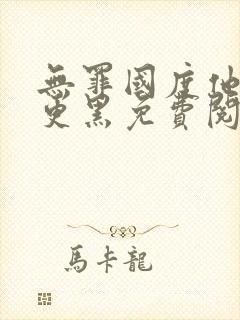 無罪國度他
更黑免費閱
馬卡龍